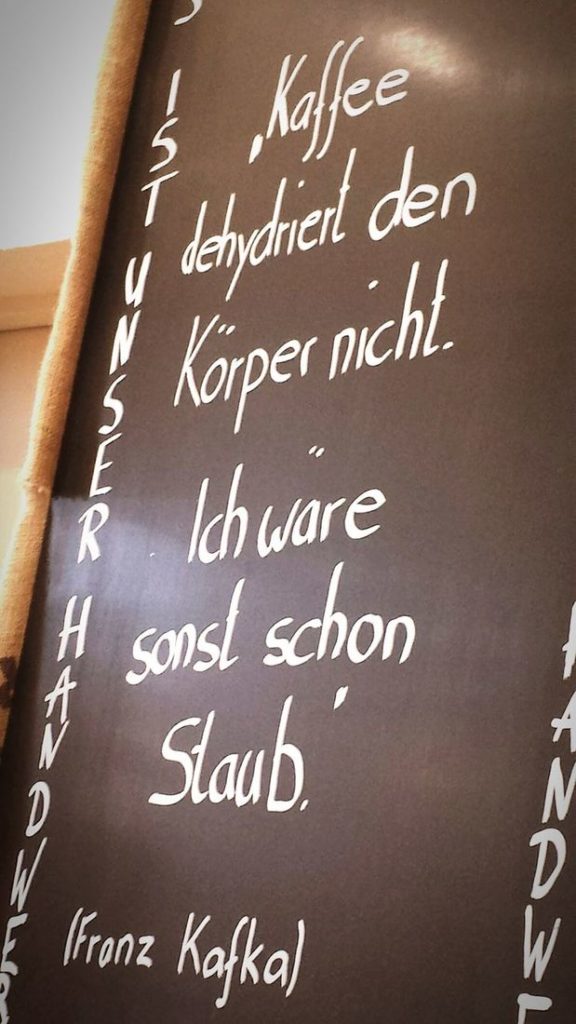 „Kaffee
dehydriert den
Körper nicht.
Ich wäre
sonst schon
Staub."
(Franz Kafka)
S IST UNSER HANDWER
HANDWE